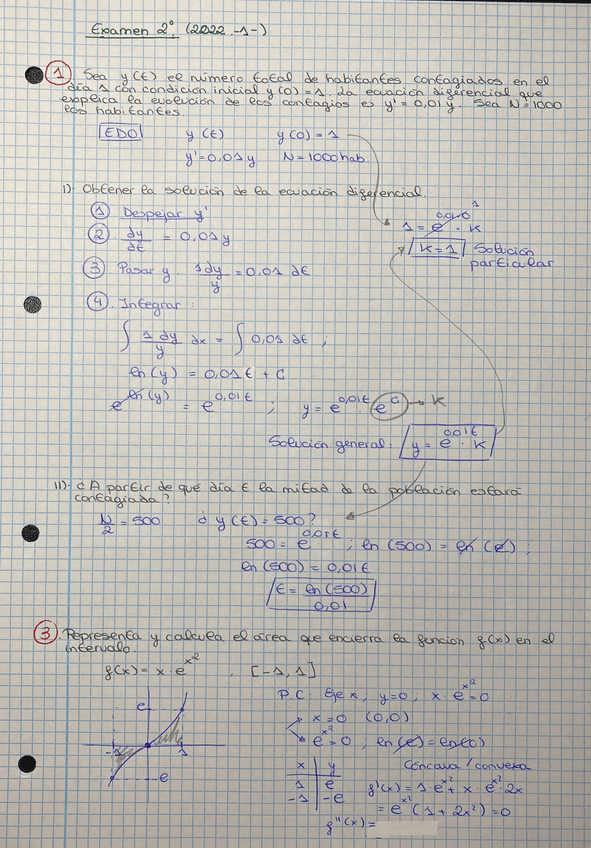 Examen 2º. (2022 -1-)
1 Sea y(t) el número total de habitantes contagiados en el
día 1 con condición inicial y(0)=1. La ecuación diferencial que
explica la evolución de los contagios es y' = 0,01 y. Sea N=1000
los habitantes.
EDO y(t) y(0)=1
y'=0,01y N=1000hab.
I) Obtener la solución de la ecuación diferencial.
1 Despejar y'
1 = e^0,01·0 · k
1
2 dy/dt = 0,01y
k=1 Solución
particular
3 Pasar y. 1dy/y = 0,01 dt
4. Integrar:
∫ 1 dy/y dx = ∫ 0,01 dt ;
ln(y) = 0,01t + C
e^ln(y) = e^0,01t ; y = e^0,01t · e^C → k
Solución general: y = e^0,01t · k
II) ¿A partir de qué día t la mitad de la población estará
contagiada?
N/2 = 500 ¿ y(t) = 500?
500 = e^0,01t ; ln(500) = ln(e) ;
ln(500) = 0,01t
t = ln(500)/0,01
3. Representa y calcula el área que encierra la función f(x) en el
intervalo.
f(x) = x·e^x² , [-1, 1]
P.C. Eje x, y=0; x·e^x²=0
x=0 (0,0)
e^x²=0, ln(e)=ln(0)
e
-1 1
-e
x y
1 e
-1 -e
Cóncava / convexa
f'(x) = 1·e^x² + x·e^x²·2x
= e^x² (1+2x²) = 0
f''(x) =